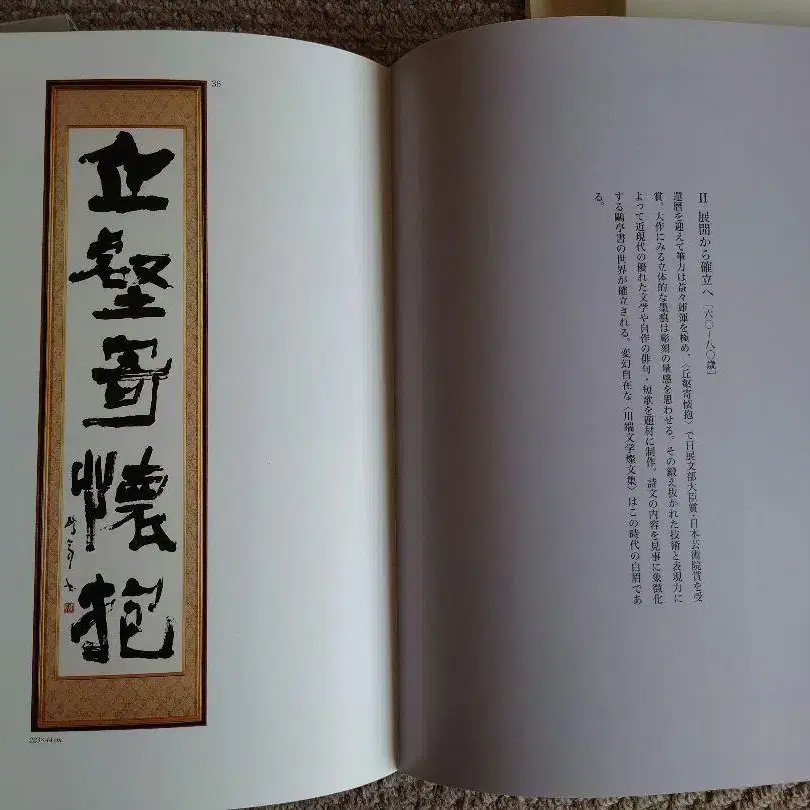 II 展開から確立へ［六〇〜八〇歳］
還暦を迎えて筆力は益々雄渾を極め、〈丘壑寄懐抱〉で日展文部大臣賞・日本芸術院賞を受
賞。大作にみる立体的な墨痕は彫刻の量感を思わせる。その鍛え抜かれた技術と表現力に
よって近現代の優れた文学や自作の俳句・短歌を題材に制作。詩文の内容を見事に象徴化
する鷗亭書の世界が確立される。変幻自在な〈川端文学燦文集〉はこの時代の白眉であ
る。
36
丘壑寄懷抱
223×44cm